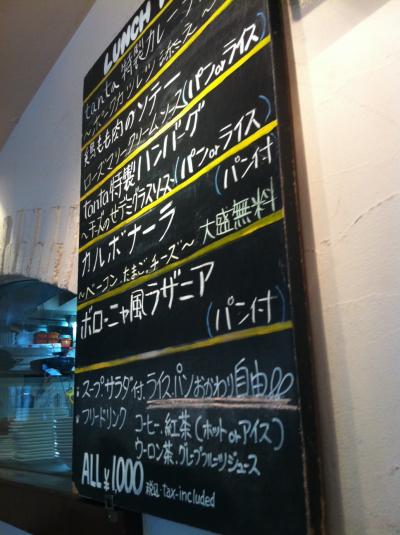 LUNCH
tanta 特製カレー
〜ポークカツレツ添え〜
若鶏もも肉のソテー
ローズマリークリームソース(パンorライス)
tanta 特製ハンバーグ
〜チーズのせデミグラスソース(パンorライス)
カルボナーラ (パン付)
〜ベーコン、たまご、チーズ〜 大盛無料
ボローニャ風ラザニア
(パン付)
スープサラダ付、ライスパンおかわり自由
フリードリンク コーヒー、紅茶(ホットorアイス)
ウーロン茶、グレープフルーツジュース
ALL ¥1,000 税込・tax-included